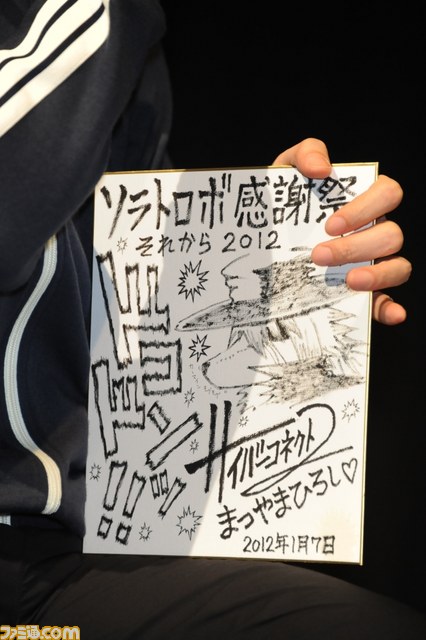 ソラトロボ感謝祭
それから2012
サイバーコネクト2
まつやまひろし♡
2012年1月7日
ファミ通.com